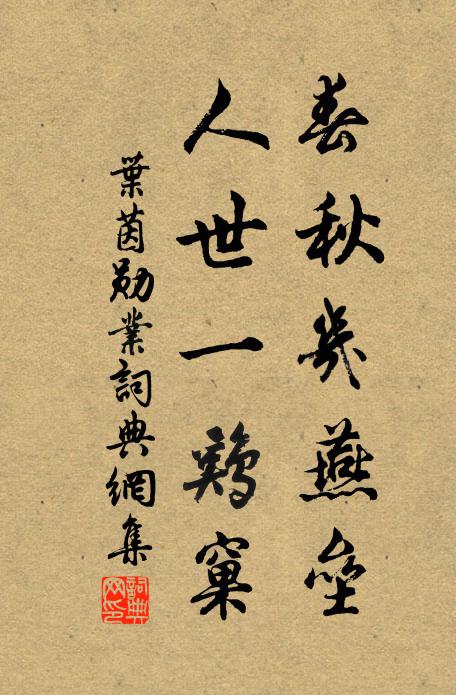 春秋幾燕壘
人世一鷄窠
葉茵勛業詞典網集
詞典网印